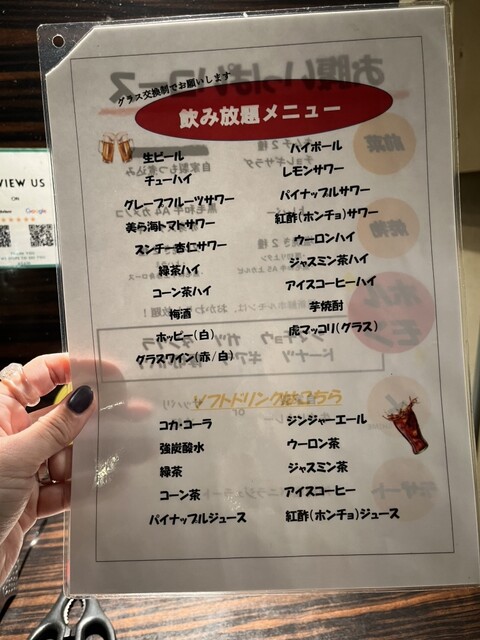 グラス交換制でお願いします
飲み放題メニュー
生ビール
チューハイ
グレープフルーツサワー
美ら海トマトサワー
スンチー杏仁サワー
緑茶ハイ
コーン茶ハイ
梅酒
ホッピー(白)
グラスワイン(赤/白)
ハイボール
レモンサワー
パイナップルサワー
紅酢(ホンチョ)サワー
ウーロンハイ
ジャスミン茶ハイ
アイスコーヒーハイ
芋焼酎
虎マッコリ(グラス)
ソフトドリンクはこちら
コカ・コーラ
強炭酸水
緑茶
コーン茶
パイナップルジュース
ジンジャーエール
ウーロン茶
ジャスミン茶
アイスコーヒー
紅酢(ホンチョ)ジュース
VIEW US
ON
Google